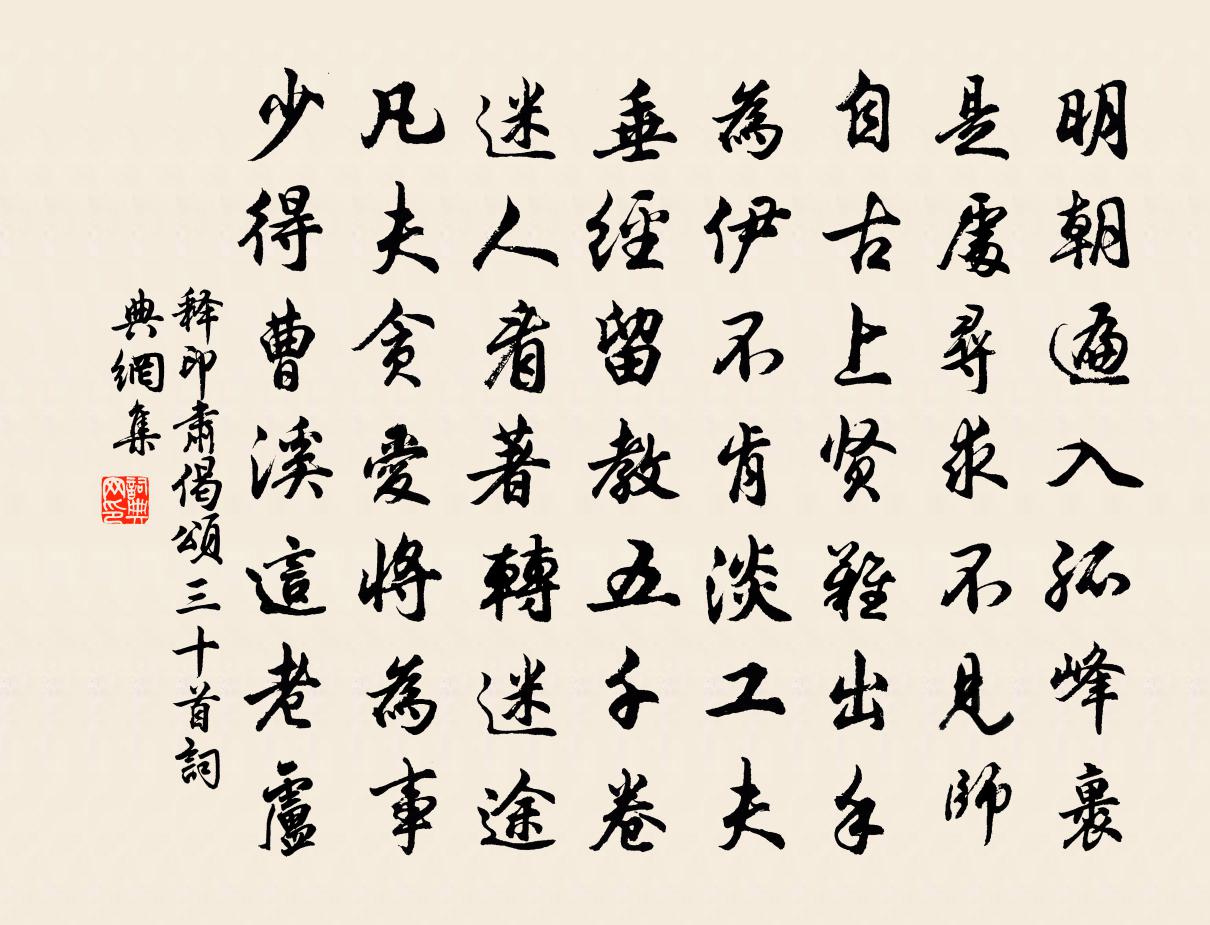 明朝遍入孤峰裏
是處尋求不見師
自古上贤難出手
為伊不肯淡工夫
垂經留教五千卷
迷人看著轉迷途
凡夫貪愛將為事
少得曹溪這老盧
释印肅偈頌三十首詞
典網集
詞典网印